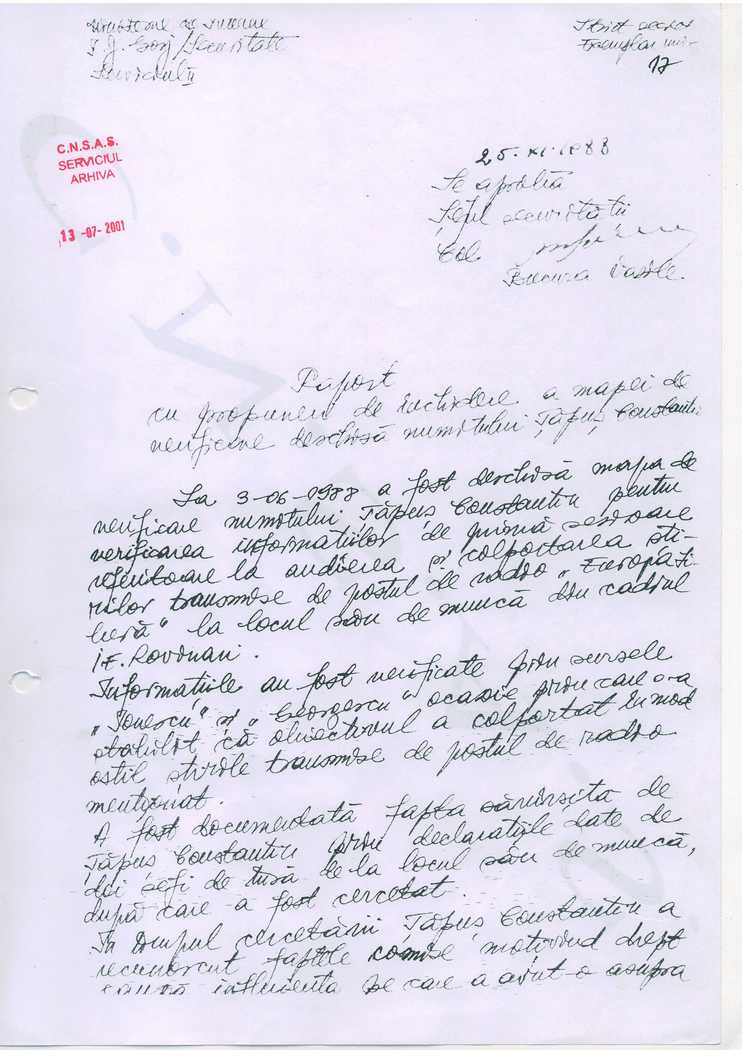 Ministerul de Interne
I.J. Gorj/Securitate
Serviciul II
Strict secret
Exemplar unic
17
C.N.S.A.S.
SERVICIUL
ARHIVA
13 -07- 2001
25.XI.1988
Se aprobă
Șeful securității
Col.
Bucura Vasile.
Raport
cu propuneri de închidere a mapei de
verificare deschisă numitului Țăpuș Constantin
La 3-06-1988 a fost deschisă mapa de
verificare numitului Țăpuș Constantin pentru
verificarea informațiilor de primă sesizare
referitoare la audierea și colportarea ști-
rilor transmise de postul de radio „Europa Li-
beră" la locul său de muncă din cadrul
I.E. Rovinari.
Informațiile au fost verificate prin sursele
„Ionescu" și „Georgescu" ocazie prin care s-a
stabilit că obiectivul a colportat în mod
ostil știrile transmise de postul de radio
menționat.
A fost documentată fapta săvîrșită de
Țăpuș Constantin prin declarațiile date de
doi șefi de tură de la locul său de muncă,
după care a fost cercetat.
În timpul cercetării Țăpuș Constantin a
recunoscut faptele comise motivînd drept
cauză influiența pe care a avut-o asupra